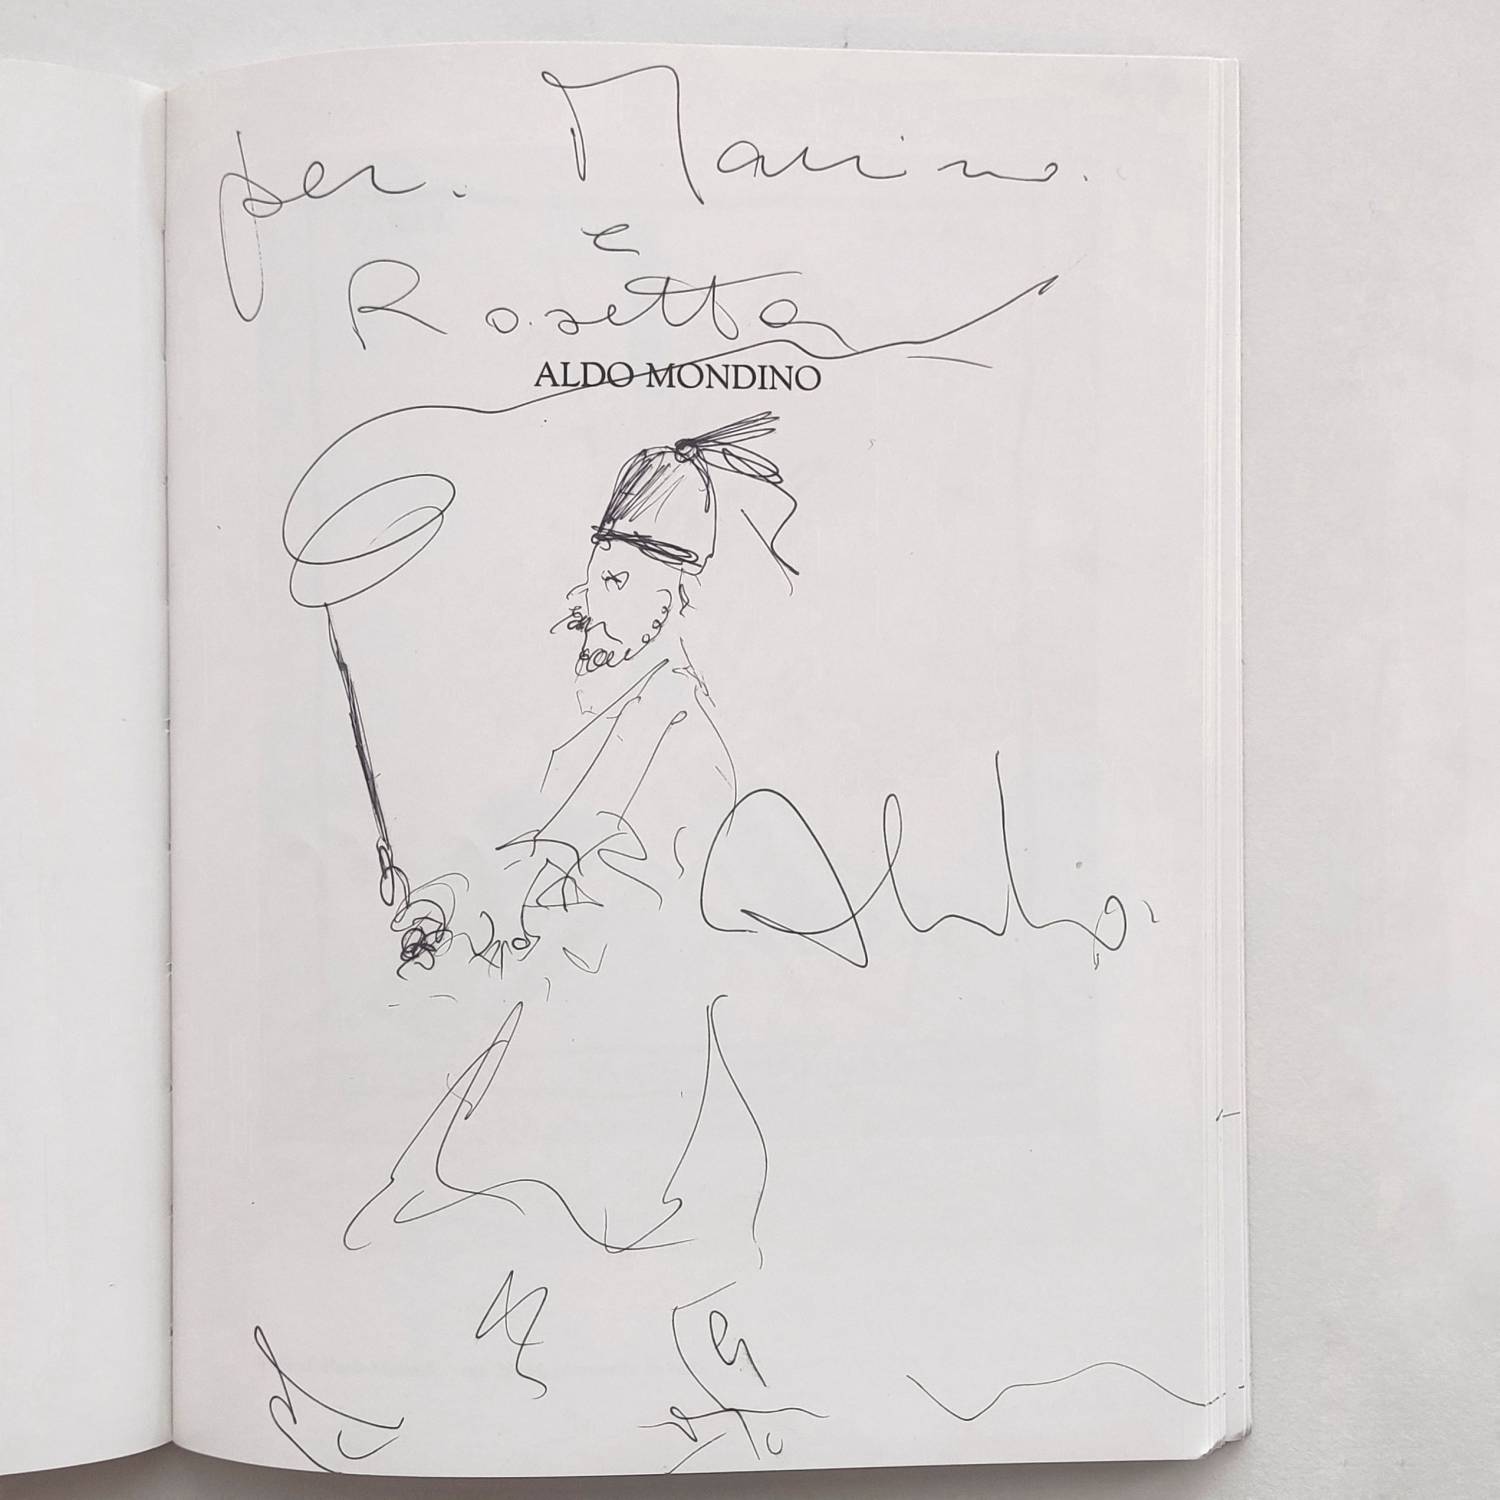 per. Marino.
e
Rosetta
ALDO MONDINO
Aldo